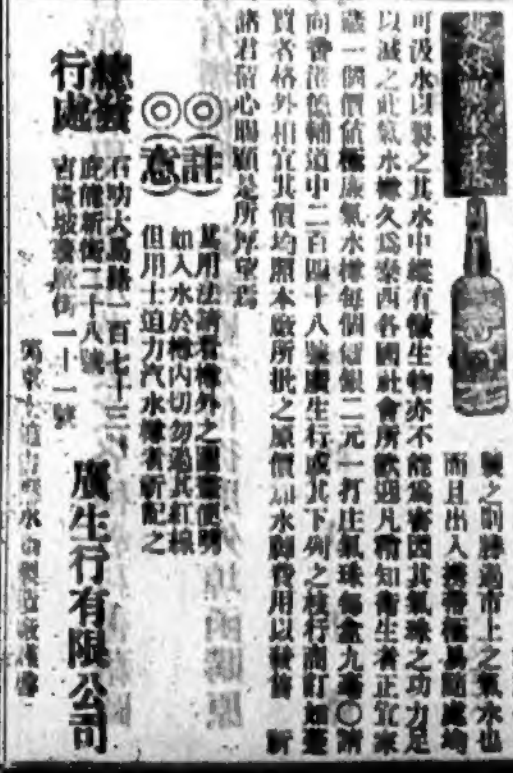 製之則勝過市上之氣水也
而且出入携帶極易隨處均
可汲水以製之其水中縱有微生物亦不能爲害因其氣球之功力足
以滅之此氣水樽久爲泰西各國社會所歡迎凡稍知衛生者正宜家
藏一個價值極廉氣水樽每個價銀二元一打庄氣球每盒九毫〇請
向香港德輔道中二百四十八號廣生行或其下列之枝行商訂如蒙
買者格外相宜其價均照本廠所批之原價加水脚費用以發售 祈
諸君留心賜顧是所厚望焉
◎◎(註)(意)
其用法請看樽外之圖畫便明
如入水於樽內切勿過其紅線
但用士迫力汽水樽者祈配之
總發行處
石叻大馬路一百七十三號
庇能新街二十八號
吉隆坡街一十一號
廣生行有限公司